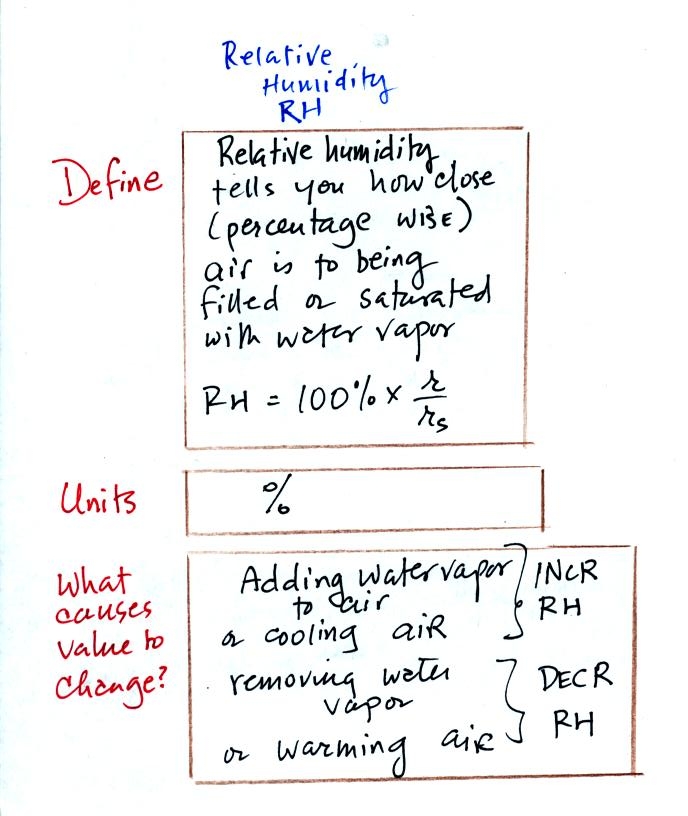 Relative
Humidity
RH
Define
Relative humidity
tells you how close
(percentage WISE)
air is to being
filled or saturated
with water vapor
RH = 100% x r/rs
Units
%
What
causes
value to
change?
Adding water vapor
to air
or cooling aiR
INCR
RH
removing water
vapor
or warming aiR
DECR
RH